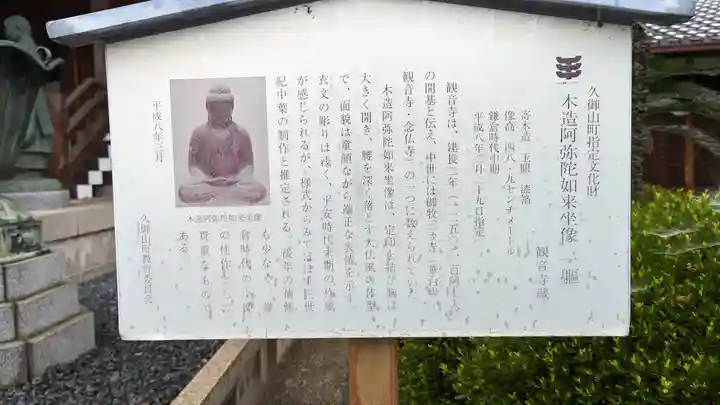 久御山町指定文化財
木造阿弥陀如来坐像 一軀
観音寺蔵
寄木造 玉眼 漆箔
像高 四八・九センチメートル
鎌倉時代中期
平成八年二月二十九日指定
観音寺は、建長二年（一二五〇）、
の開基と伝え、中世には御牧
観音寺・念仏寺）の一つに数えられていた
木造阿弥陀如来坐像は、定印を結び胸は
大きく開き、腰を深く落とす大仏風の体型
で、面貌は童顔ながら端正な表情を示す
衣文の彫りは浅く、平安時代末期の作風
が感じられるが、様式からみてほぼ十三世
紀中葉の制作と推定される 後年の補修
も少なく、鎌
倉時代の小像
の佳作として
貴重なもので
ある
平成八年三月
久御山町教育委員会
木造阿弥陀如来坐像